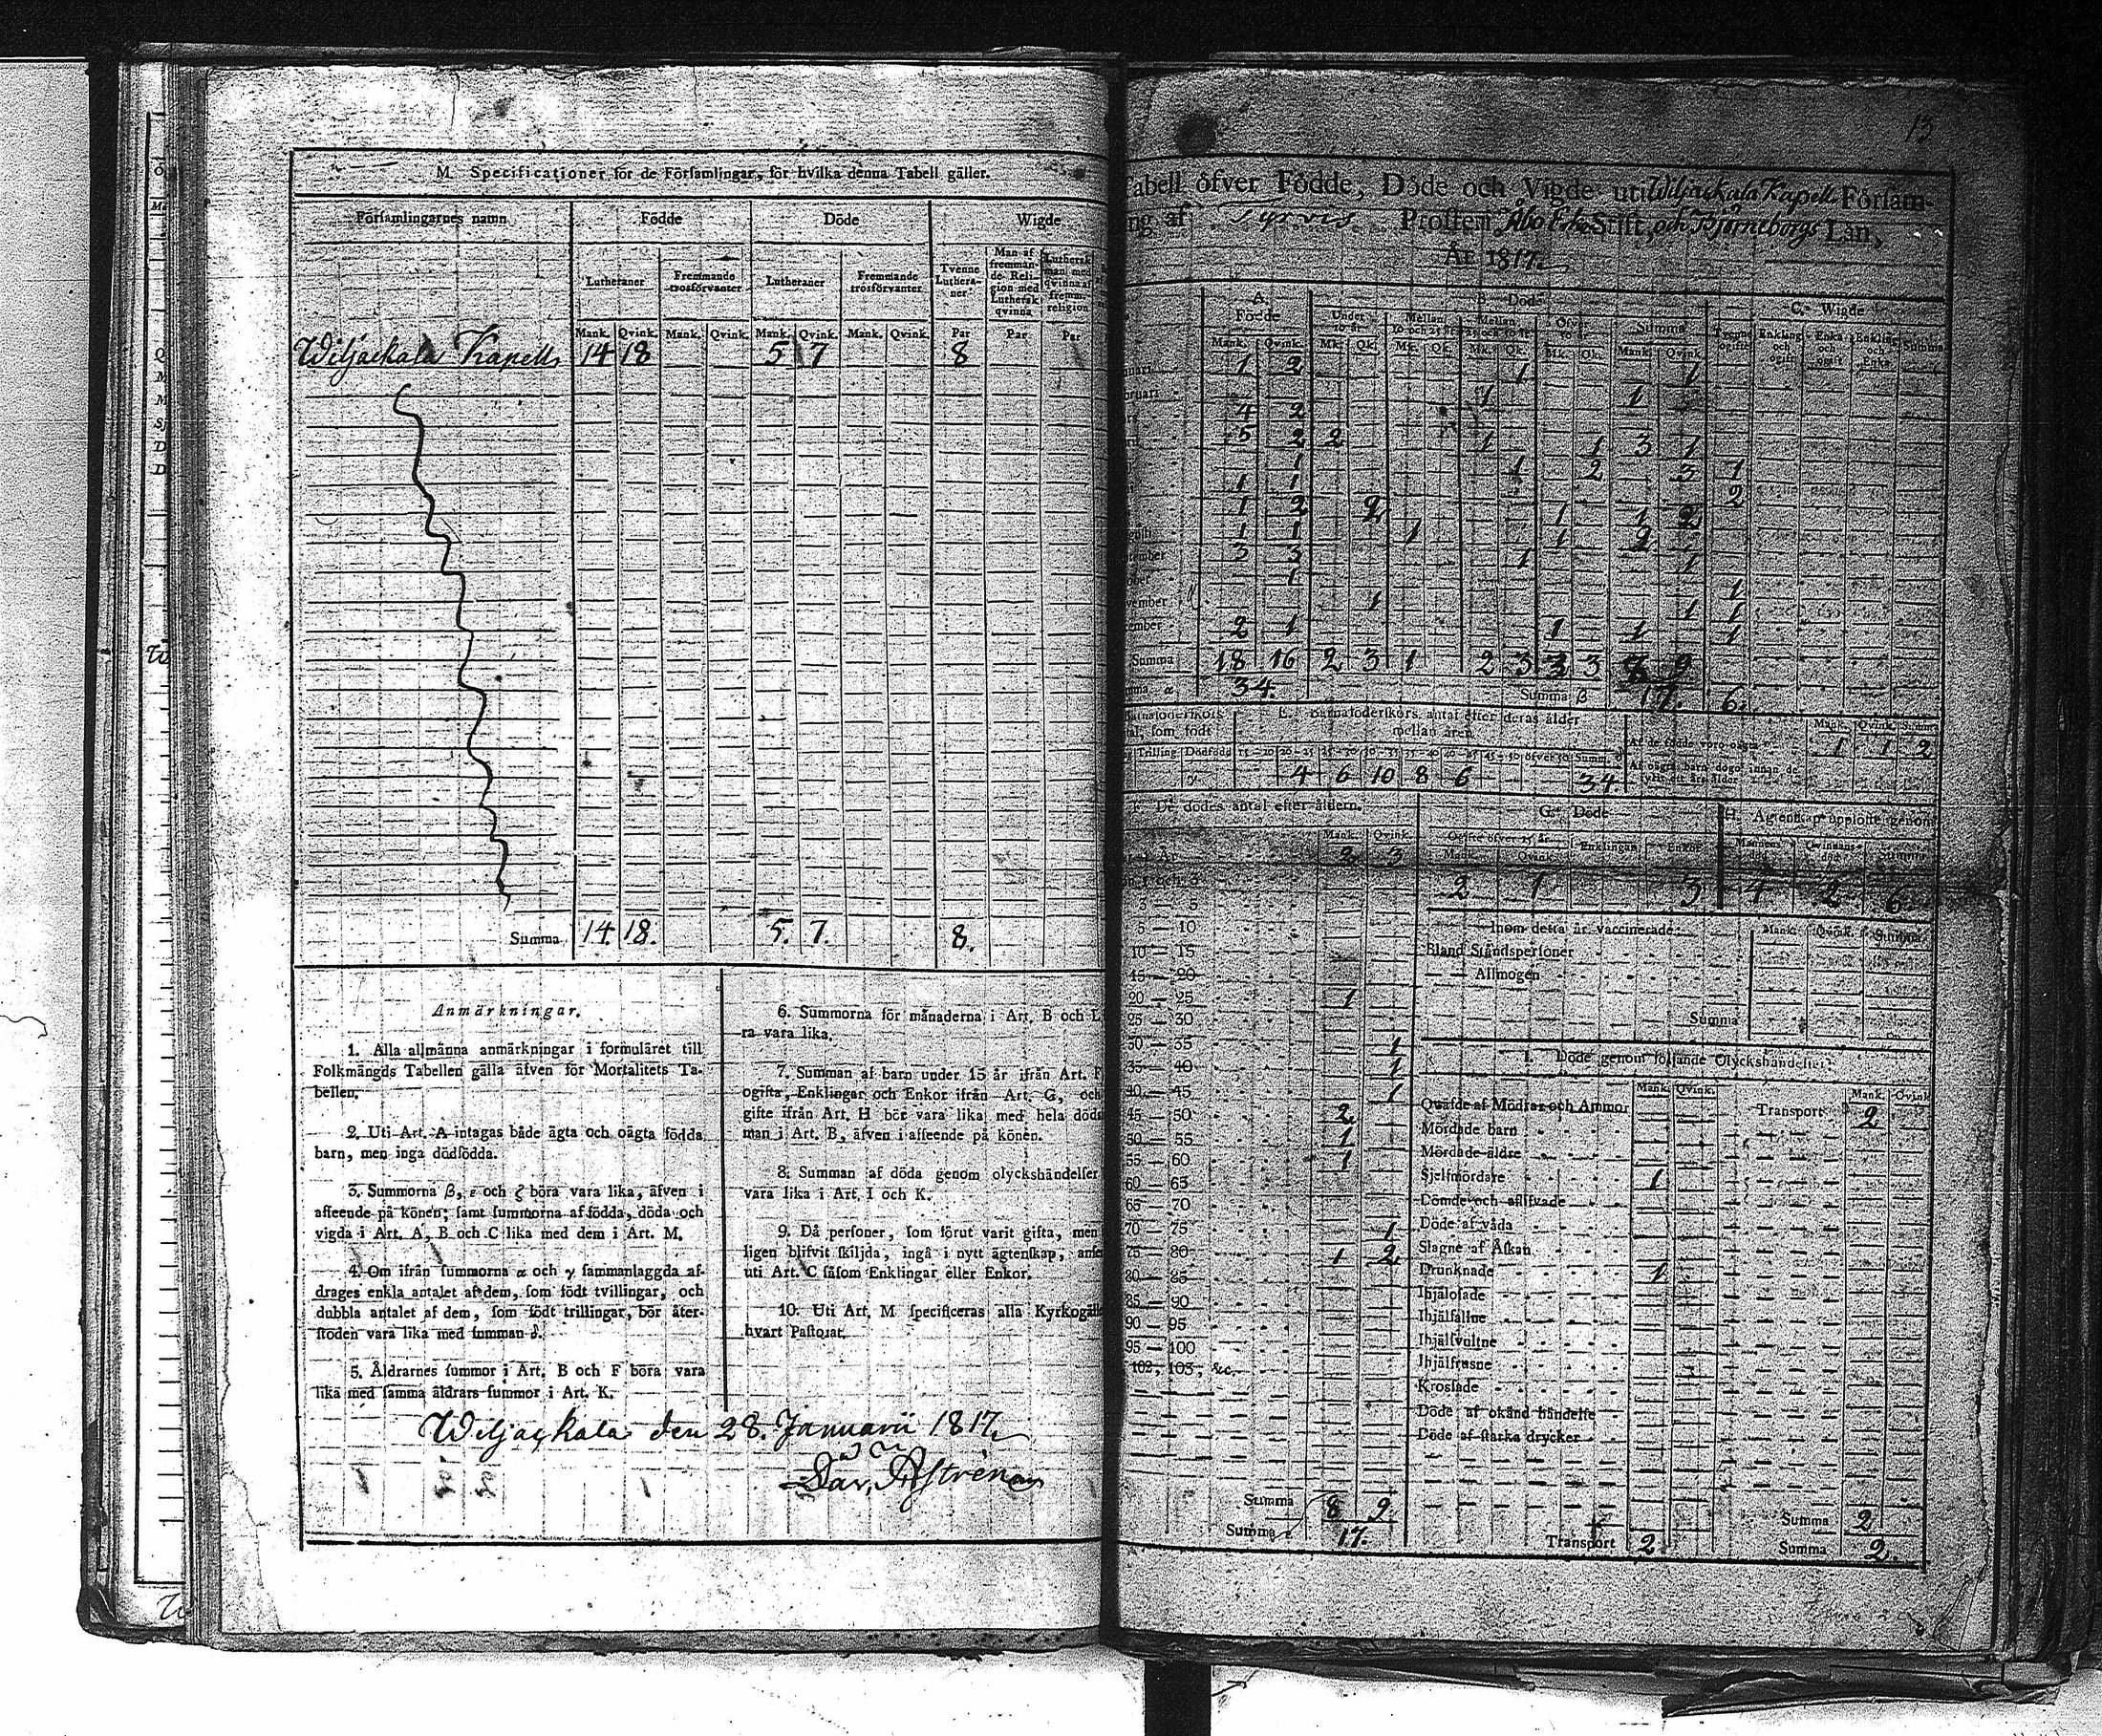 M. Specificationer för de Församlingar, för hvilka denna Tabell gäller.
Församlingarnes namn Födde Döde Wigde
Lutheraner Fremmande trosförvanter Lutheraner Fremmande trosförvanter Tvenne Lutheraner Man af fremmande Religion med Luthersk qvinna Luthersk man med qvinna af fremm. religion
Mank. Qvink. Mank. Qvink. Mank. Qvink. Mank. Qvink. Par Par Par
Wiljackala Kapell 14 18 5 7 8
Summa 14. 18. 5. 7. 8.
Anmärkningar.
1. Alla allmänna anmärkningar i formuläret till
Folkmängds Tabellen gälla äfven för Mortalitets Ta-
bellen.
2. Uti Art. A intagas både ägta och oägta födda
barn, men inga dödfödda.
3. Summorna β, ε och ζ böra vara lika, äfven i
afseende på könen; samt summorna af födda, döda och
vigda i Art. A, B och C lika med dem i Art. M.
4. Om ifrån summorna α och γ sammanlaggda af-
drages enkla antalet af dem, som födt tvillingar, och
dubbla antalet af dem, som födt trillingar, bör åter-
stoden vara lika med summan δ.
5. Åldrarnes summor i Art. B och F böra vara
lika med samma åldrars summor i Art. K.
6. Summorna för månaderna i Art. B och L
ra vara lika.
7. Summan af barn under 15 år ifrån Art. F
ogifta, Enklingar och Enkor ifrån Art. G, och
gifte ifrån Art. H bör vara lika med hela döds
man i Art. B, äfven i afseende på könen.
8. Summan af döda genom olyckshändelser
vara lika i Art. I och K.
9. Då personer, som förut varit gifta, men
ligen blifvit skiljda, ingå i nytt ägtenskap, anse
uti Art. C såsom Enklingar eller Enkor.
10. Uti Art. M specificeras alla Kyrkogäll
hvart Pastorat.
Wiljackala den 28. Januarii 1817.
Dav. Astrén
13
Tabell öfver Födde, Döde och Vigde uti Wiljackala Kapell Församling
af Tyrvis Prosteri, Åbo Erke Stift, och Björneborgs Län,
År 1817.
A. Födde B. Döde C. Wigde
Under 10 år Mellan 10 och 25 år Mellan 25 och 50 år Öfver 50 Summa Tvenne ogifte Enkling och ogift Enka och ogift Enkling och Enka Summa
Mank. Qvink. Mk. Qk. Mk. Qk. Mk. Qk. Mk. Qk. Mank. Qvink.
nuari 1 2 1 1
bruari 1 1
4 2
5 2 2 1 1 3 1
1 1 2 3 1
1 1 2
1 2 2 1 1 2
gusti 1 1 1 1 2
tember 3 3 1 1
ober 1 1
vember 1 1 1
cember 2 1 1 1 1
Summa 18 16 2 3 1 2 3 3 3 8 9
mma α 34. Summa β 17. 6.
E. Barnaföderskors antal efter deras ålder
mellan åren
Trilling Dödfödd 15-20 20-25 25-30 30-35 35-40 40-45 45-50 öfver 50 Summ. δ
γ 4 6 10 8 6 34.
Mank. Qvink. Summa
Af de födde voro oägta 1 1 2
Af oägta barn dogo innan de
fyllt ett års ålder
F. De dödes antal efter åldern. G. Döde H. Ägtenskap upplöste genom
Mank. Qvink. Ogifte öfver 15 år Enklingar Enkor Mannens död Qvinnans död Summa
2 3 Mank. Qvink.
2 1 3 4 2 6.
3 — 5
5 — 10
10 — 15
15 — 20
20 — 25 1
25 — 30
30 — 35 1
35 — 40 1
40 — 45 1
45 — 50 2
50 — 55 1
55 — 60 1
60 — 65
65 — 70
70 — 75 1
75 — 80 1 2
80 — 85
85 — 90
90 — 95
95 — 100
102, 103, &c.
Summa 8 9.
Summa 17.
Inom detta år vaccinerade: Mank. Qvink. Summa
Bland Ståndspersoner
— Allmogen
Summa
I. Döde genom följande Olyckshändelser:
Mank. Qvink. Mank. Qvink
Qväfde af Mödrar och Ammor Transport 2
Mördade barn
Mördade äldre
Sjelfmördare 1
Dömde och aflifvade
Döde af våda
Slagne af Åskan
Drunknade 1
Ihjälosade
Ihjälfallne
Ihjälsvultne
Ihjälfrusne
Krossade
Döde af okänd händelse
Döde af starka drycker
Summa 2
Transport 2 Summa 2.